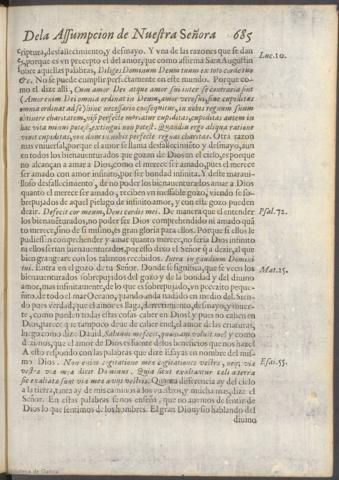 De la Assumpcion de Nuestra Señora 685
criptura, desfallecimiento, y desmayo. Y vna de las razones que se dan
es, porque es vn precepto el del amor, que como affirma Sant Augustin
sobre aquellas palabras, Diliges Dominum Deum tuum ex toto corde tuo
&c. No se puede cumplir perfectamente en este mundo. Porque co-
mo el dize alli, Cum amor Dei atque amor sui inter se contraria sint
(Amor enim Dei omnia ordinat in Deum, amor vero sui, sine cupiditas
omnia ordinat ad se) sine necessario consequitur, in nobis regnum suum
obtinere charitatem, nisi perfecte moriatur cupiditas, cupiditas autem in
hac vita minui potest, extingui non potest. Quandiu ergo aliqua ratione
viuit cupiditas, non dum in nobis perfecte regnat charitas. Otra razon
mas vniuersal, porque el amor se llama desfallecimiento y desmayo, aun
en todos los bienauenturados que gozan de Dios en el cielo, es porque
no alcançan a amar a Dios, como el merece ser amado, pues el merece
ser amado con amor infinito, por ser bondad infinita. Y deste maraui-
lloso desfallecimiento, de no poder los bienauenturados amar a Dios
quanto el merece ser amado, reciben vn inefable gozo, viendo se so-
brepujados de aquel pielago de infinito amor, y con este gozo pueden
dezir. Defecit cor meum, Deus cordis mei. De manera que el entender
los bienauenturados, no poder ser Dios comprehendido ni amado quã
to merece, sino de si mismo, es gran gloria para ellos. Porque si ellos le
pudiessen comprehender y amar quanto merece, no seria Dios infinito
ni ellos serian bienauenturados, por esso dixo el Señor q̃ a dezir, al que
bien grangeare con los talentos recebidos. Intra in gaudium Domini
tui. Entra en el gozo de tu Señor. Donde se significa, que se veen los
bienauenturados sobrepujados del gozo y de la bondad y del diuino
amor, mas infinitamente, de lo que es sobrepujado, vn pecezito peque-
ñito, de todo el mar Oceano, quando anda nadando en medio del. Sien-
do pues verdad, que el amor es llaga, derretimiento, desmayo, y muer-
te, como pueden todas estas cosas caber en Dios? y pues no caben en
Dios, parece que tampoco deue de caber en el, el amor de las criaturas,
luego como dize Dauid,
como di-
zimos, que el amor de Dios es fuente de los beneficios que nos haze?
A esto respondo con las palabras que dize Esayas en nombre del mis-
mo Dios. Non enim cogitationes meæ cogitationes vestræ, neque viæ
vestræ viæ meæ dicit Dominus. Quia sicut exaltantur cæli a terra
sic exaltatæ sunt viæ meæ a viis vestris. Quanta differencia ay del cielo
a la tierra, tanta ay de mis caminos a los vuestros, y mucha mas, dize el
Señor. En estas palabras se nos enseña, que no auemos de sentir de
Dios lo que sentimos de los hombres. El gran Dionysio hablando del
diuino
Luc.10.
Psal.72.
Mat.25.
Esai.55.